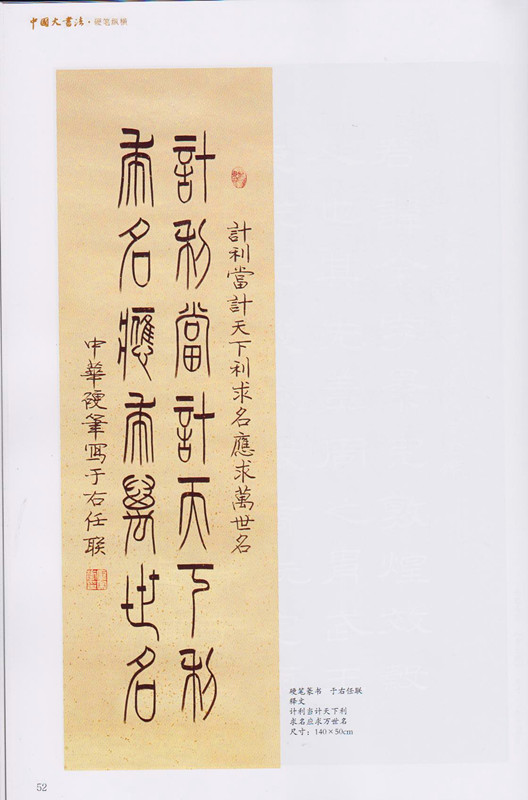 中国大书法·硬笔纵横
計利當計天下利求名應求萬世名
計利當計天下利
求名應求萬世名
中華硬筆寫于右任联
硬笔篆书 于右任联
释文
计利当计天下利
求名应求万世名
尺寸：140×50cm
52